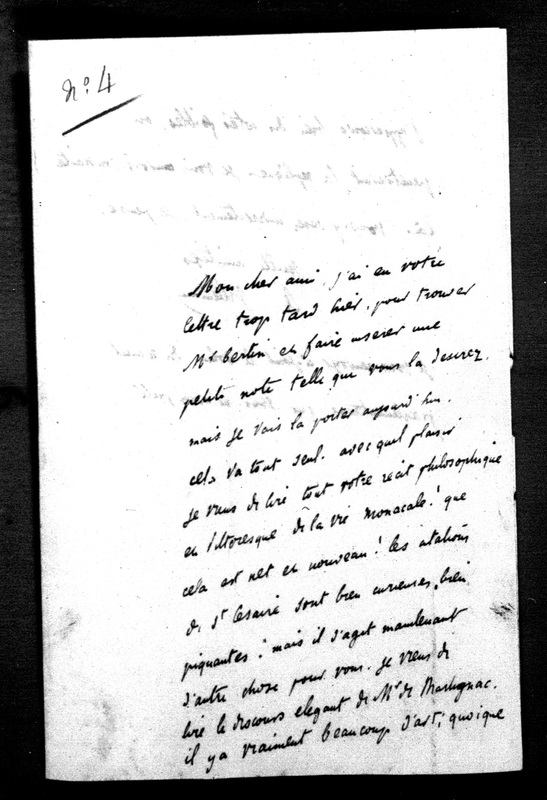 n° 4
Mon cher ami j'ai eu votre
lettre trop tard hier, pour trouver
Mr bertin et faire inserer une
petite note telle que vous la desirez.
mais je vais la porter aujourd'hui.
cela va tout seul. avec quel plaisir
je viens de lire tout votre recit philosophique
et pittoresque de la vie monacale! que
cela est net et nouveau! les citations
de St Cesaire sont bien curieuses, bien
piquantes! mais il s'agit maintenant
d'autre chose pour vous. je viens de
lire le discours elegant de Mr de Martignac.
il y a vraiment beaucoup d'art, quoique